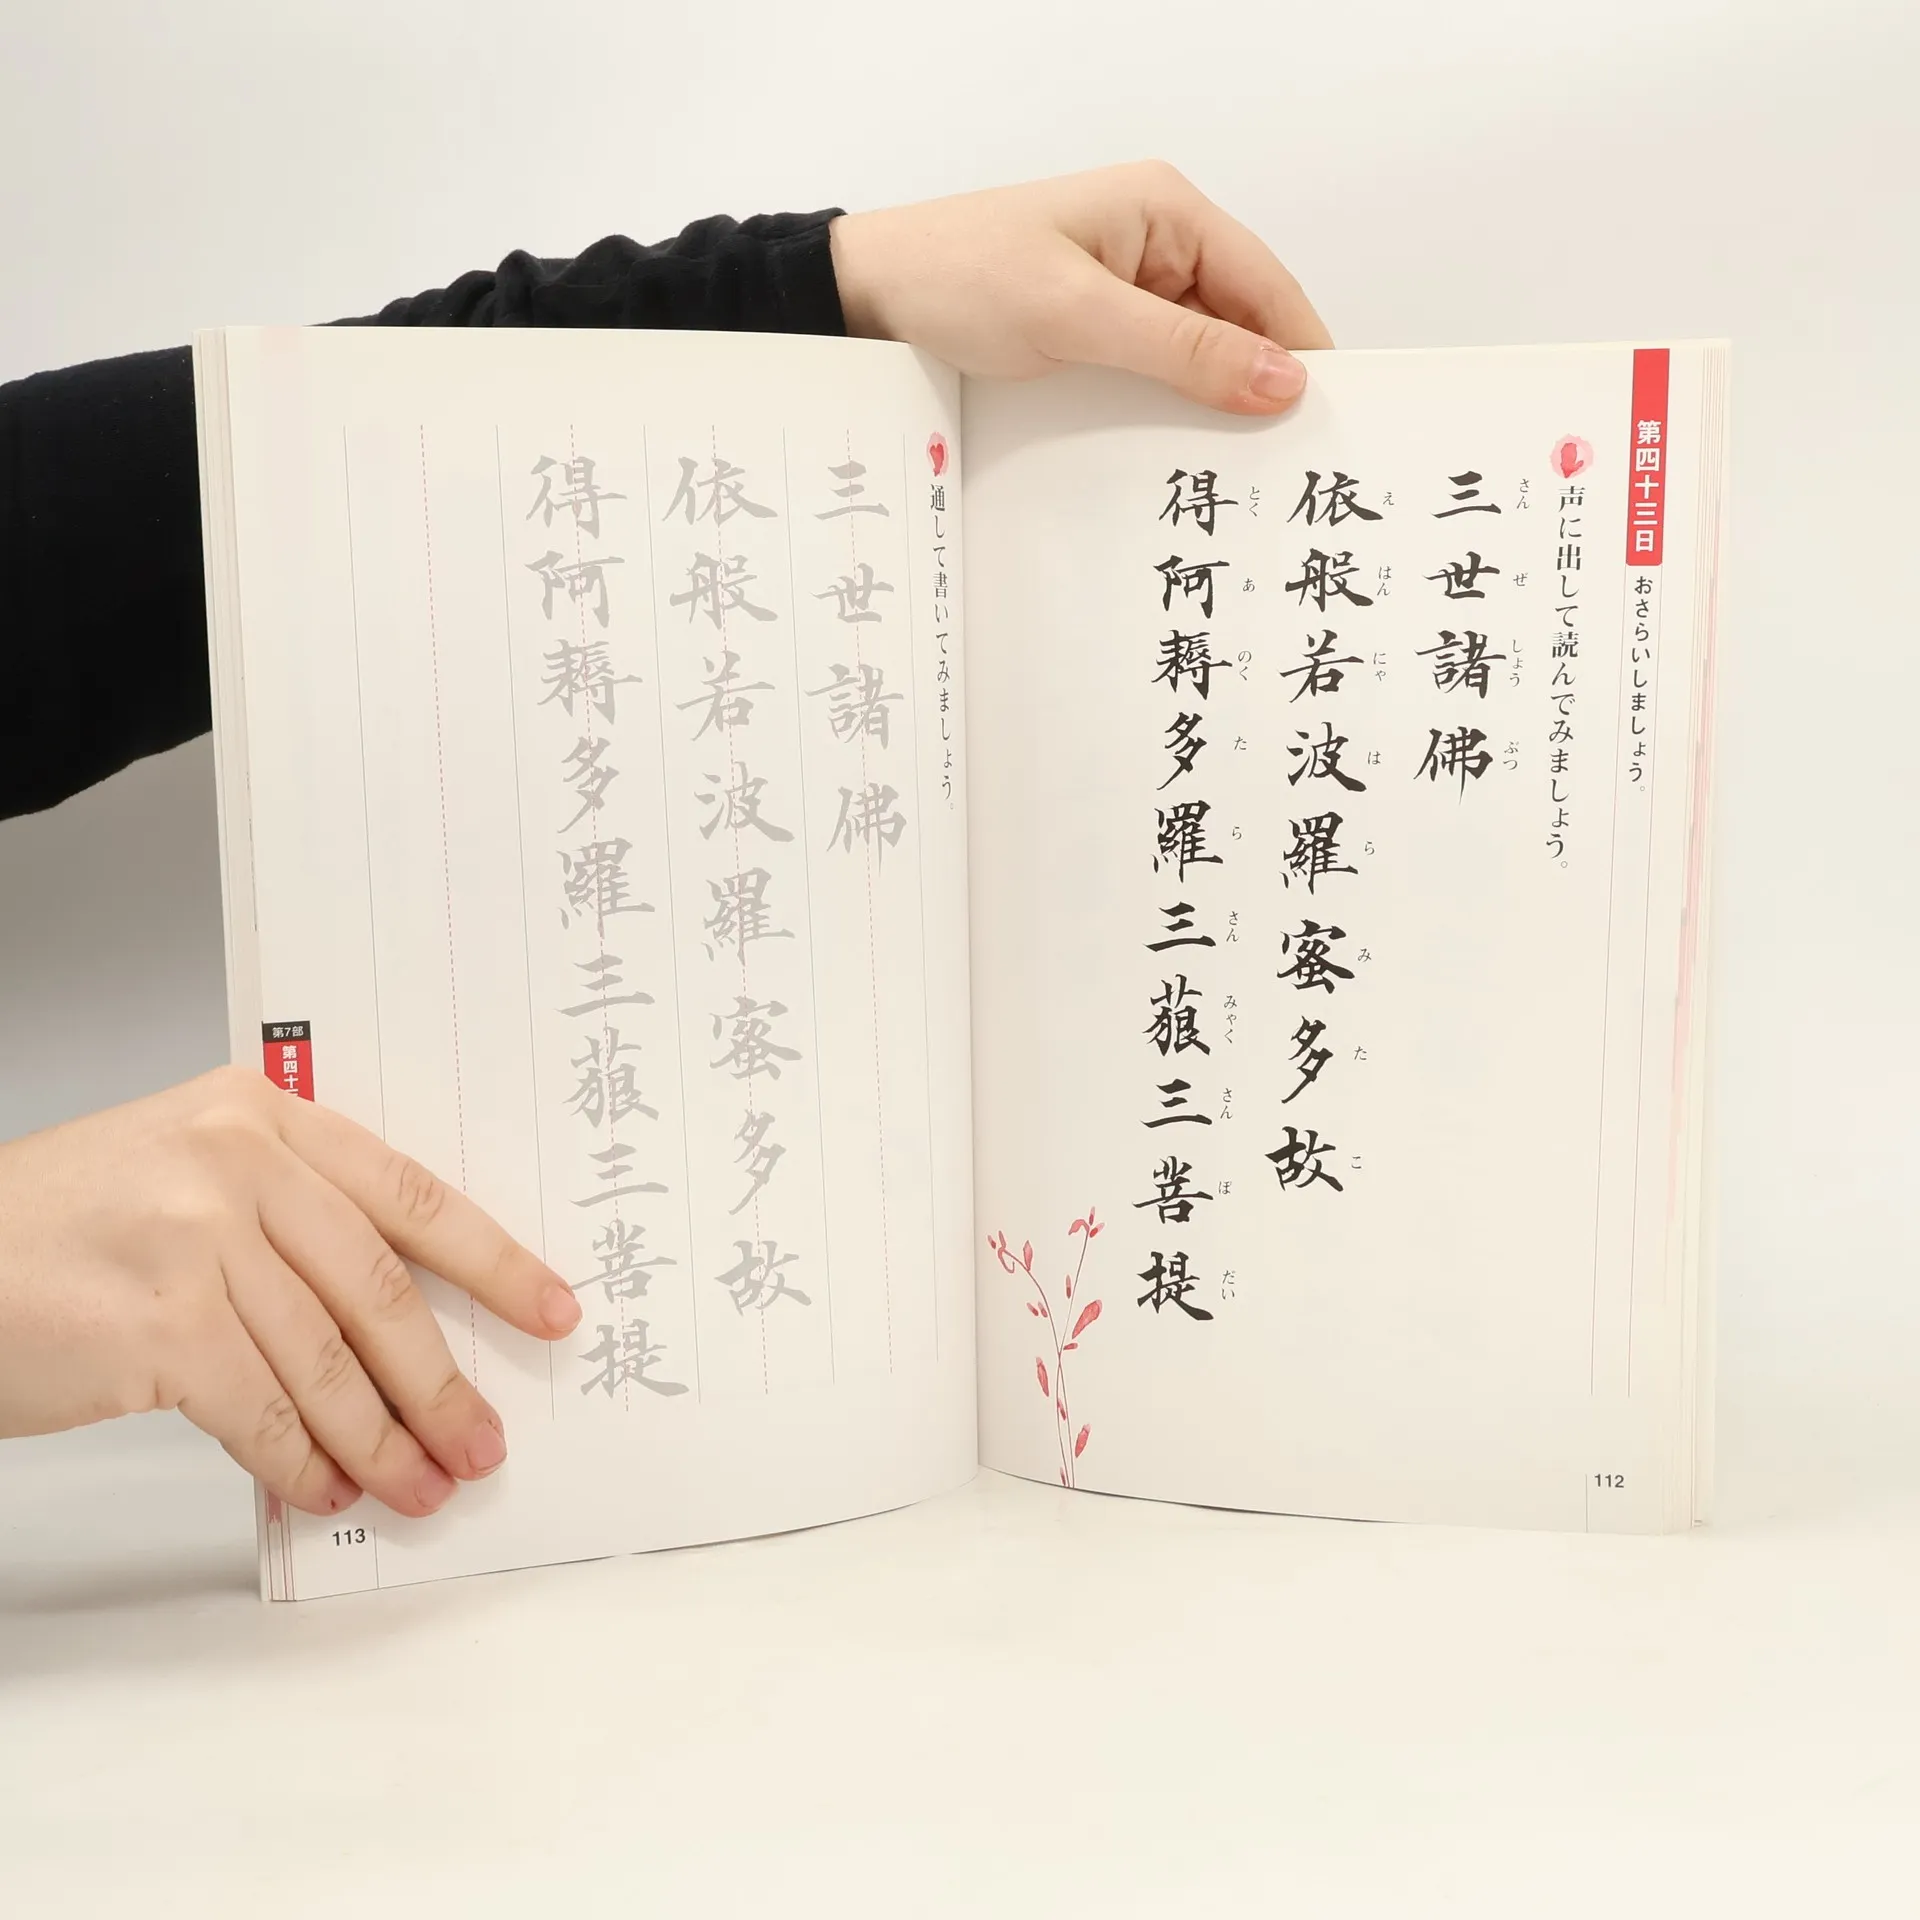 第四十三日
おさらいしましょう。
声に出して読んでみましょう。
三世諸佛
さんぜしょうぶつ
依般若波羅蜜多故
えはんにゃはらみたこ
得阿耨多羅三藐三菩提
とくあのくたらさんみゃくさんぼだい
112
通して書いてみましょう。
三世諸佛
依般若波羅蜜多故
得阿耨多羅三藐三菩提
第7部
第四十三
113